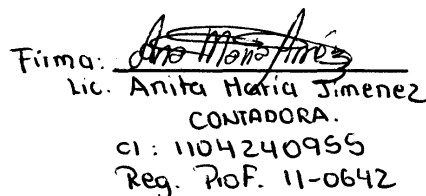 Firma: Ana María Jiménez
Lic. Anita María Jimenez
CONTADORA.
CI: 1104240955
Reg. Prof. 11-0642